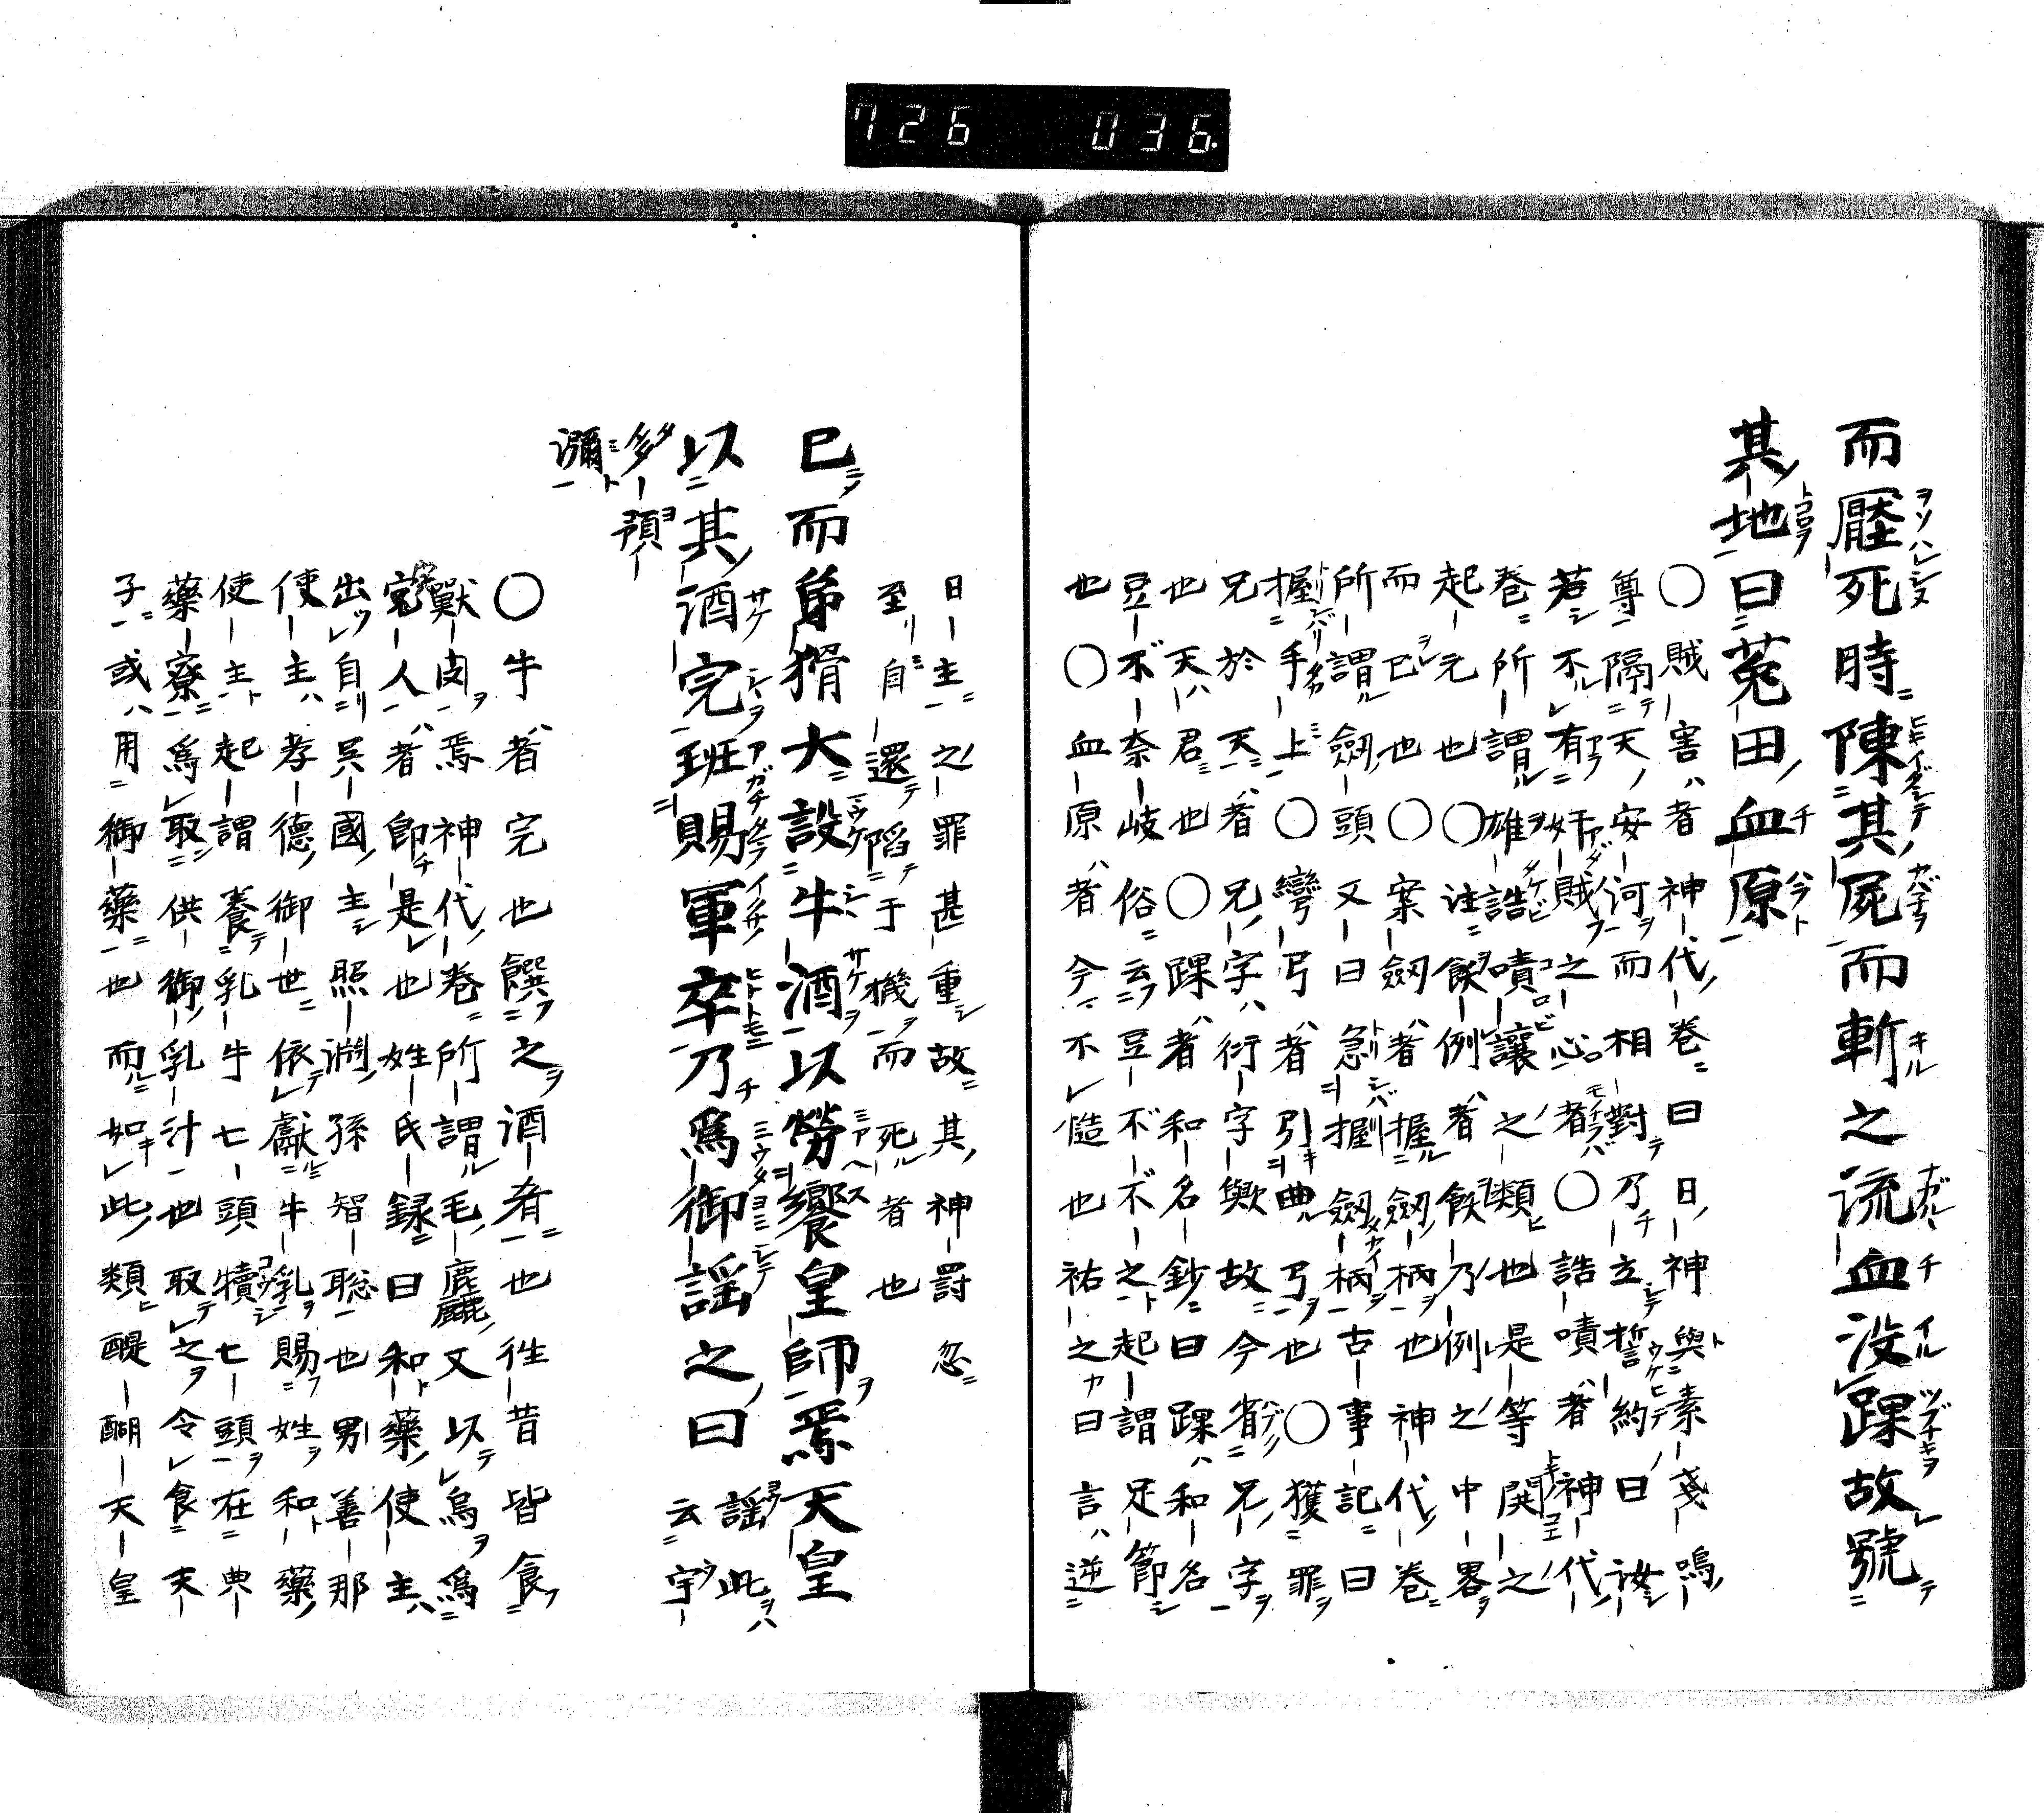 726 036
而壓死時陳其屍而斬之流血没踝故號
其地曰菟田血原
〇賊害者神代巻曰日神與素戔嗚
尊隔天安河而相對乃立誓約曰汝
若不有姧賊之心者〇誥嘖者神代
巻所謂雄誥嘖讓之類也是等関之
起元也〇注飫例者飫乃例之中畧
而已也〇案劔者握劔柄也神代巻
所謂劔頭又曰急握劔柄古事記曰
握手上〇彎弓者引曲弓也〇獲罪
兄於天者兄字衍字歟故今省兄字
也天君也〇踝者和名鈔曰踝和名
豆不奈岐俗云豆不不之起謂足節
也〇血原者今不儘也祐之曰言逆
日主之罪甚重故其神罰忽
至自還蹈于機而死者也
已而弟猾大設牛酒以勞饗皇師焉天皇
以其酒完班賜軍卒乃爲御謡之曰 謡此
云宇
多預
瀰
〇牛者完也饌之酒肴也徃昔皆食
獣肉焉神代巻所謂毛麁又以烏爲
完人者即是也姓氏録曰和藥使主
出自呉國主照淵孫智聡也男善那
使主孝德御世依獻牛乳賜姓和藥
使主起謂養乳牛七頭犢七頭在典
藥寮爲取供御乳汁也取之令食夫
子或用御藥也而如此類醍醐天皇